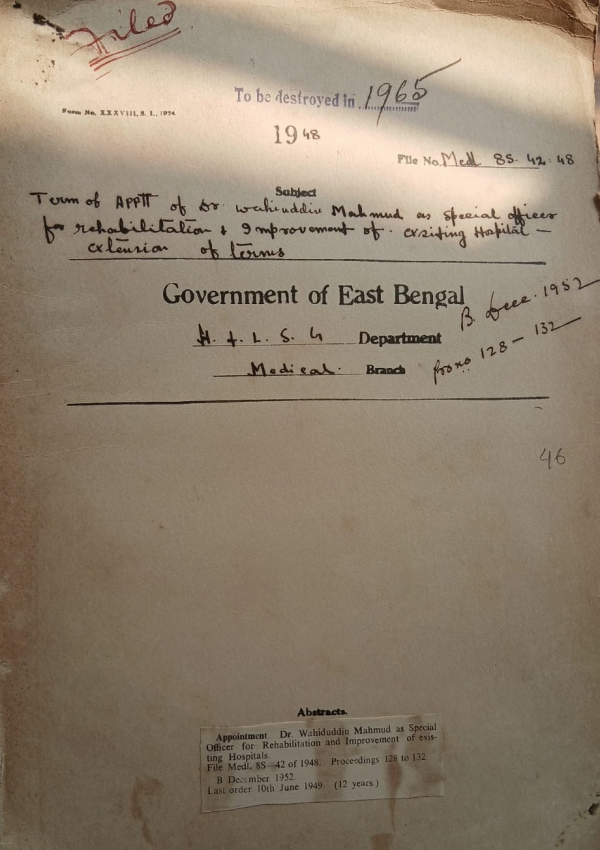 Filed
To be destroyed in 1965
Form No. XXXVIII, S. I., 1924
1948
File No. Medl 8S- 42. 48
Subject
Term of APPtt of Dr. Wahiuddin Mahmud as special officer
for rehabilitation & Improvement of exsiting Hospital —
extension of terms
Government of East Bengal
B. Dece. 1952
H. & L. S. G Department
from 128 - 132
Medical. Branch
46
Abstracts.
Appointment Dr. Wahiduddin Mahmud as Special
Officer for Rehabilitation and Improvement of exis-
ting Hospitals.
File Medl. 8S—42 of 1948. Proceedings 128 to 132
B December 1952.
Last order 10th June 1949. (12 years.)